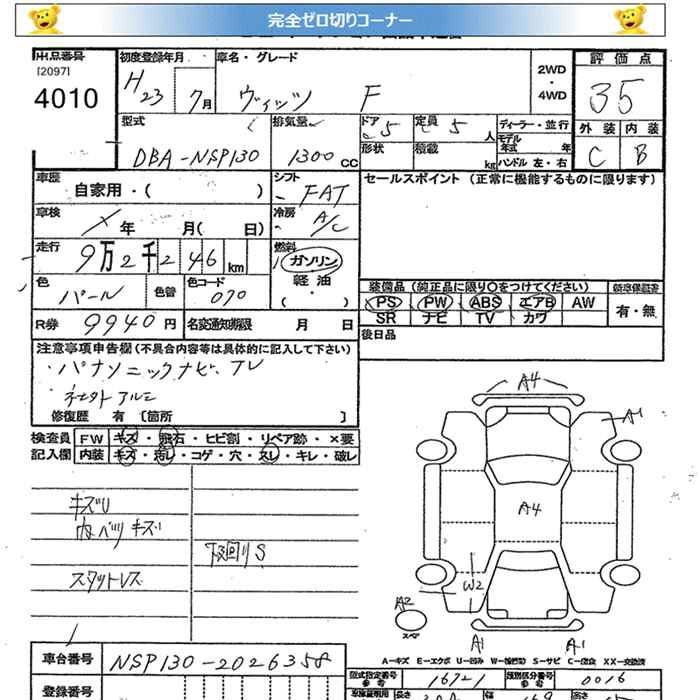 完全ゼロ切りコーナー
出品番号 初度登録年月 車名・グレード 評価点
[2097]
4010 H23 7月 ヴィッツ F 2WD・4WD 35
型式 排気量 ドア 5 定員 5人 ディーラー・並行 外装 内装
モデル年式 年
DBA-NSP130 1300CC 形状 積載 kg ハンドル 左・右 C B
車歴 自家用・( ) シフト FAT セールスポイント(正常に機能するものに限ります)
車検 年 月( 日) 冷房 A/C
走行 9万2千246km 燃料 ガソリン 軽油・( )
色 パール 色替 色コード 070 装備品(純正品に限り○をつけてください) 新車保証書
PS PW ABS エアB AW 有・無
SR ナビ TV カワ
R券 9940円 名変通知期限 月 日 後日品
注意事項申告欄(不具合内容等は具体的に記入して下さい)
・パナソニックナビ、TV
アルミ
修復歴 有[箇所 ]
検査員 FW キズ・飛石・ヒビ割・リペア跡・×要
記入欄 内装 キズ・汚レ・コゲ・穴・スレ・キレ・破レ
A4
A1
A4
キズU
内ベツキズ
下回りS
スタットレス
W2
A2
スペア
A1 A1
A-キズ E-エクボ U-凹み W-補修跡 S-サビ C-腐食 XX-交換済
車台番号 NSP130-2026358
型式指定番号 16721 類別区分番号 0016
登録番号 長さ 幅 169 高さ